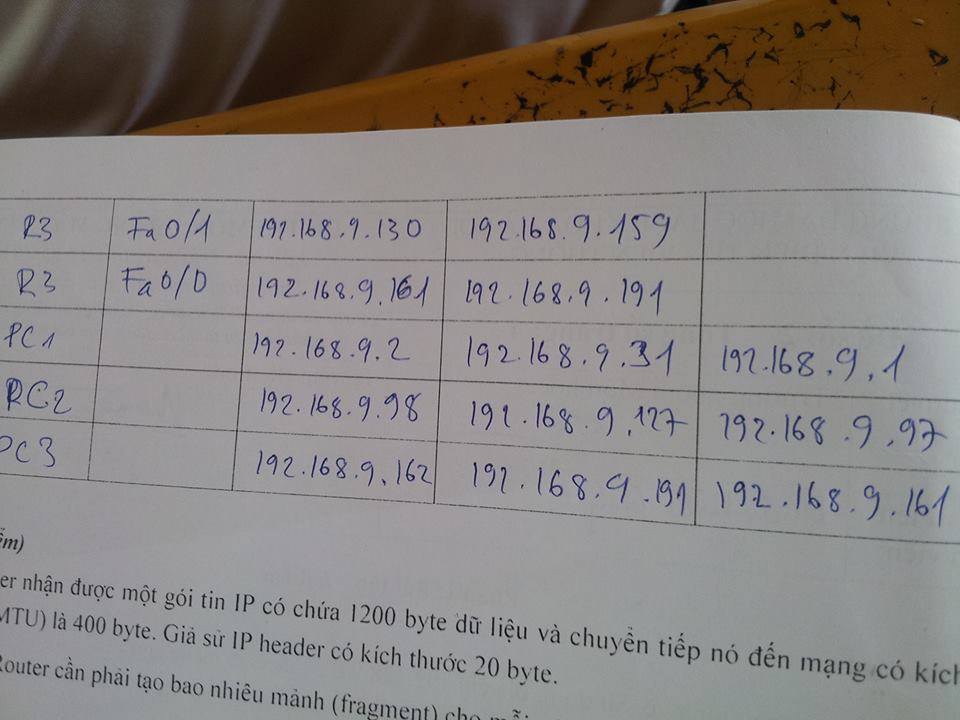 R3 Fa0/1 192.168.9.130 192.168.9.159
R3 Fa0/0 192.168.9.161 192.168.9.191
PC1 192.168.9.2 192.168.9.31 192.168.9.1
PC2 192.168.9.98 192.168.9.127 192.168.9.97
PC3 192.168.9.162 192.168.9.191 192.168.9.161
ểm)
er nhận được một gói tin IP có chứa 1200 byte dữ liệu và chuyển tiếp nó đến mạng có kích
MTU) là 400 byte. Giả sử IP header có kích thước 20 byte.
Router cần phải tạo bao nhiêu mảnh (fragment) cho